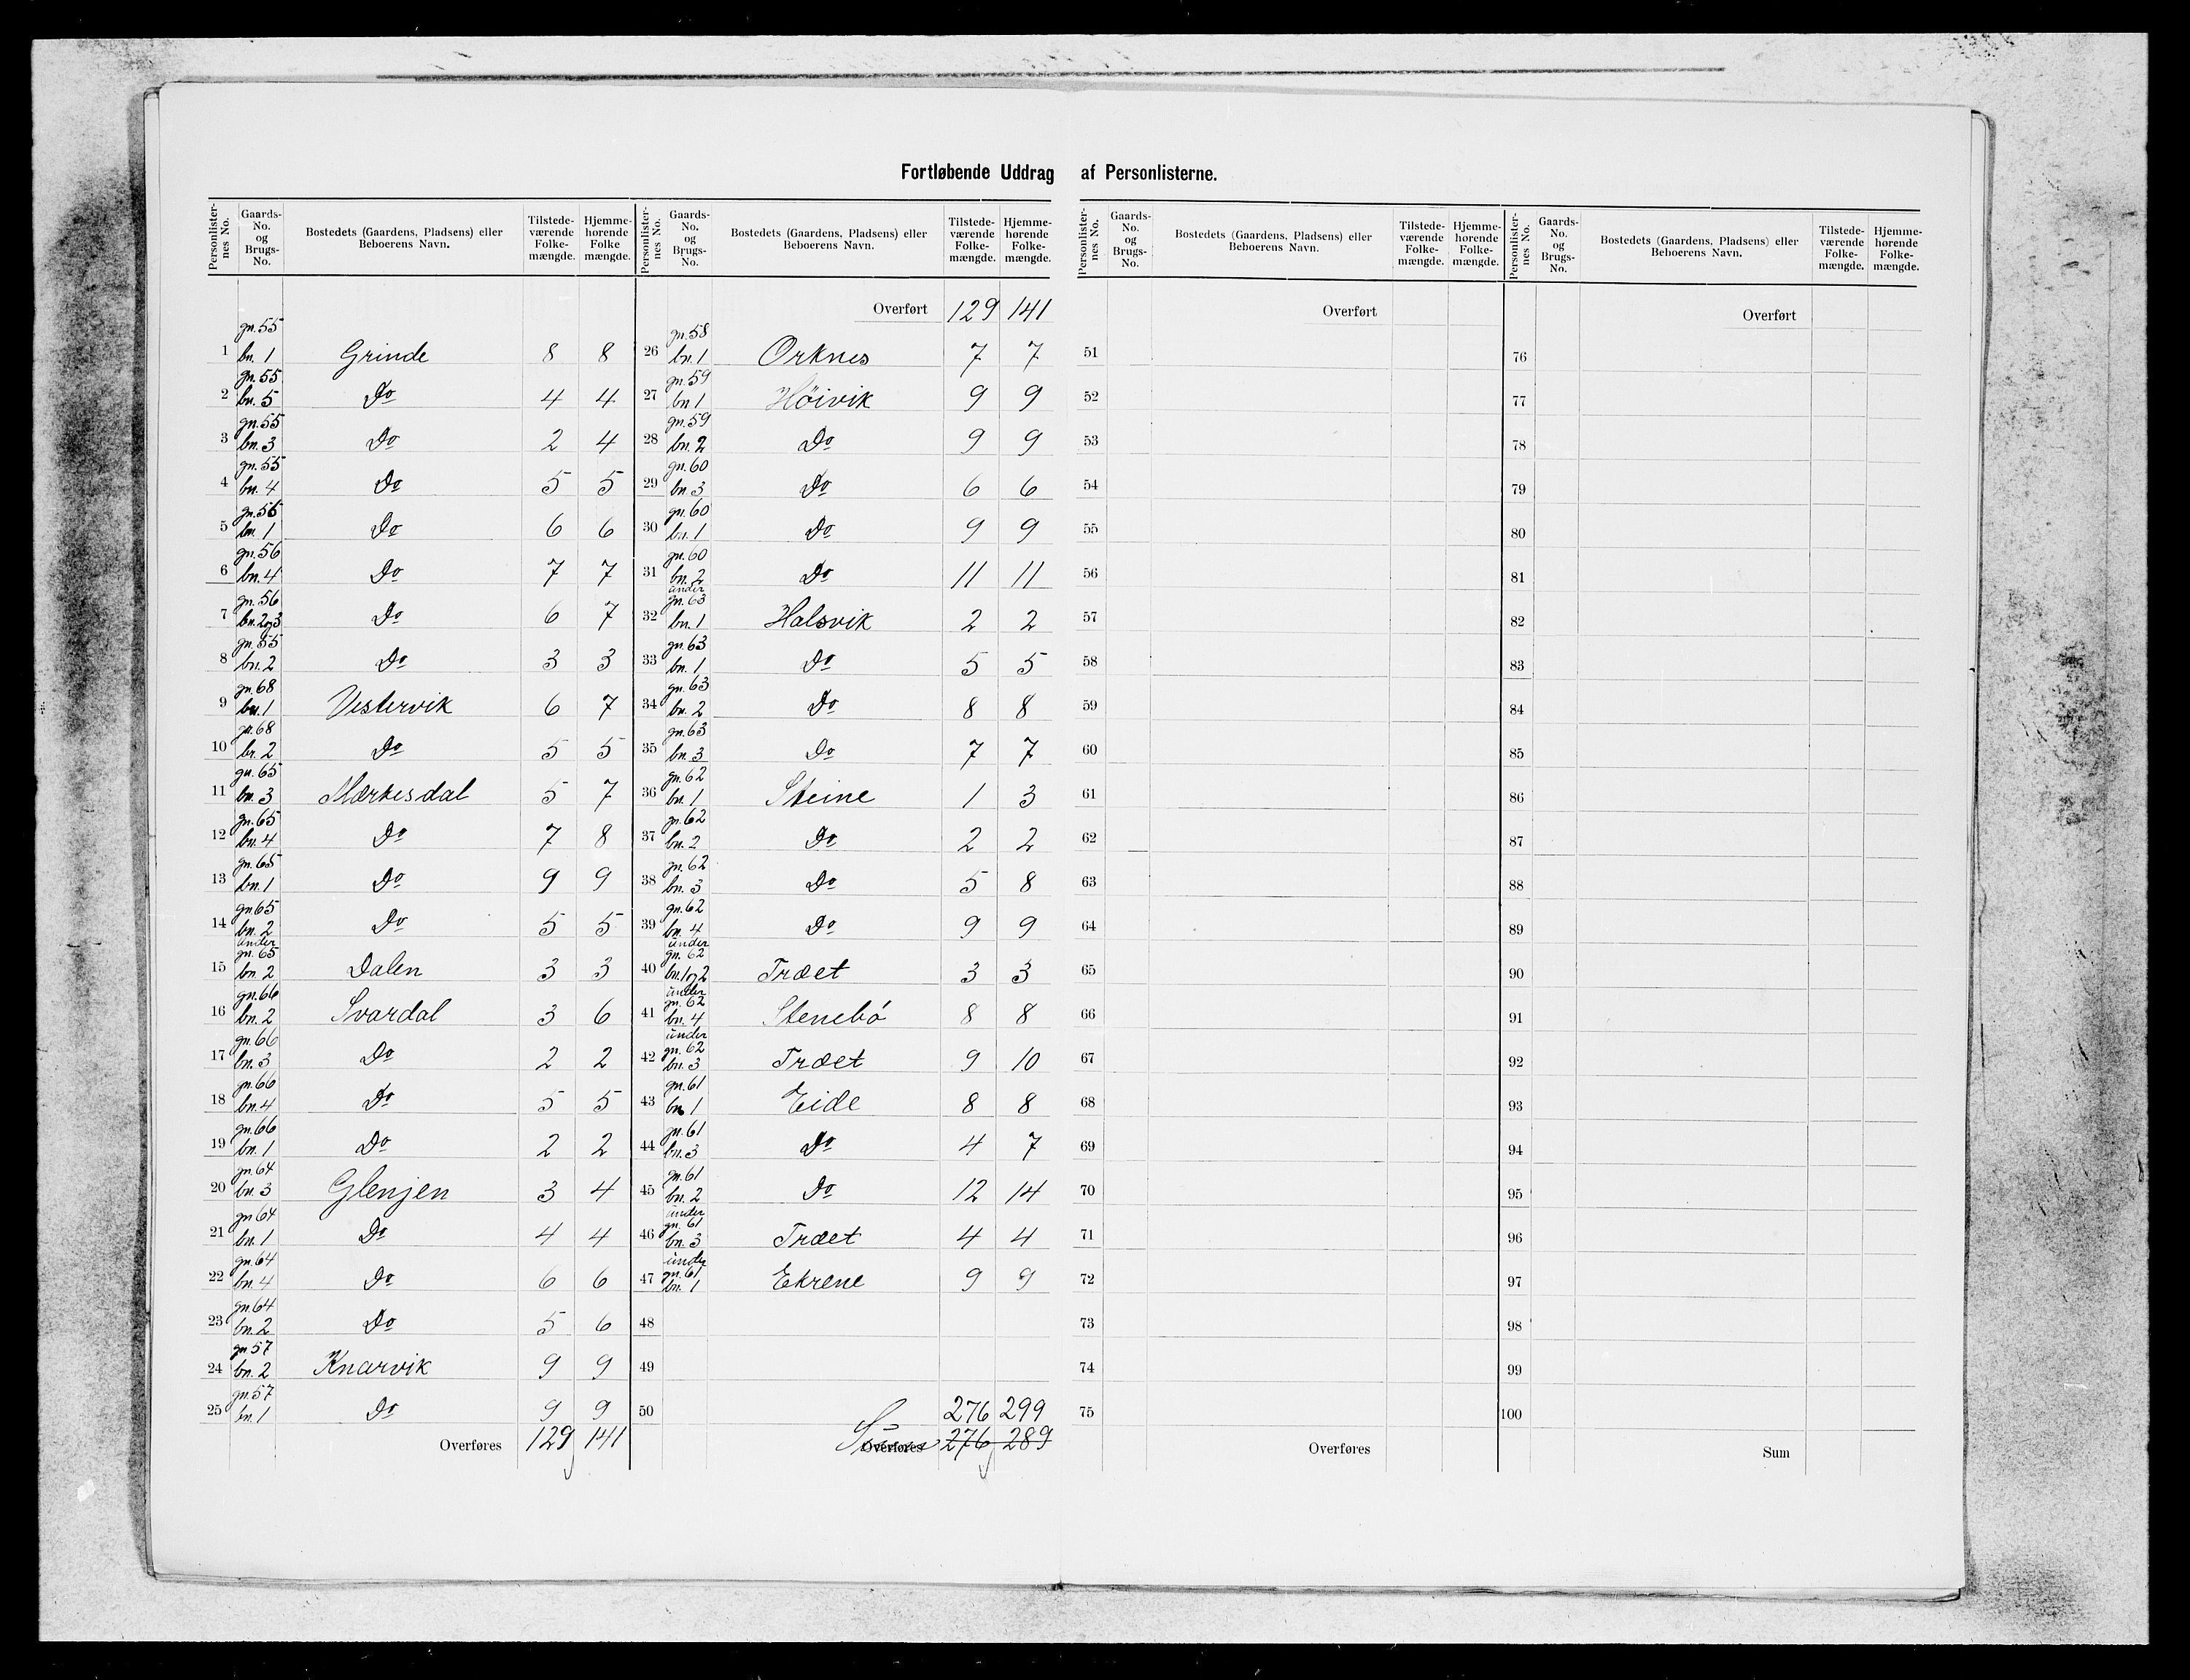 Fortløbende Uddrag af Personlisterne.
Personlisternes No. Gaards-No. og Brugs-No. Bostedets (Gaardens, Pladsens) eller Beboerens Navn. Tilstedeværende Folkemængde. Hjemmehørende Folkemængde.
1 gn. 55 bn. 1 Grinde 8 8
2 gn. 55 bn. 5 Do 4 4
3 gn. 55 bn. 3 Do 2 4
4 gn. 55 bn. 4 Do 5 5
5 gn. 56 bn. 1 Do 6 6
6 gn. 56 bn. 4 Do 7 7
7 gn. 56 bn. 2og3 Do 6 7
8 gn. 55 bn. 2 Do 3 3
9 gn. 68 bn. 1 Vestervik 6 7
10 gn. 68 bn. 2 Do 5 5
11 gn. 65 bn. 3 Mærkesdal 5 7
12 gn. 65 bn. 4 Do 7 8
13 gn. 65 bn. 1 Do 9 9
14 gn. 65 bn. 2 Do 5 5
15 under gn. 65 bn. 2 Dalen 3 3
16 gn. 66 bn. 2 Svardal 3 6
17 gn. 66 bn. 3 Do 2 2
18 gn. 66 bn. 4 Do 5 5
19 gn. 66 bn. 1 Do 2 2
20 gn. 64 bn. 3 Glenjen 3 4
21 gn. 64 bn. 1 Do 4 4
22 gn. 64 bn. 4 Do 6 6
23 gn. 64 bn. 2 Do 5 6
24 gn. 57 bn. 2 Knarvik 9 9
25 gn. 57 bn. 1 Do 9 9
Overføres 129 141
Personlisternes No. Gaards-No. og Brugs-No. Bostedets (Gaardens, Pladsens) eller Beboerens Navn. Tilstedeværende Folkemængde. Hjemmehørende Folkemængde.
Overført 129 141
26 gn. 58 bn. 1 Orknes 7 7
27 gn. 59 bn 1 Høivik 9 9
28 gn. 59 bn. 2 Do 9 9
29 gn. 60 bn. 3 Do 6 6
30 gn. 60 bn. 1 Do 9 9
31 gn. 60 bn. 2 Do 11 11
32 under gn. 63 bn. 1 Halsvik 2 2
33 gn. 63 bn. 1 Do 5 5
34 gn. 63 bn. 2 Do 8 8
35 gn. 63 bn. 3 Do 7 7
36 gn. 62 bn. 1 Steine 1 3
37 gn. 62 bn. 2 Do 2 2
38 gn. 62 bn. 3 Do 5 8
39 gn. 62 bn. 4 Do 9 9
40 under gn. 62 bn. 1og2 Træet 3 3
41 under gn. 62 bn. 4 Stenebø 8 8
42 under gn. 62 bn. 3 Træet 9 10
43 gn. 61 bn. 1 Eide 8 8
44 gn. 61 bn. 3 Do 4 7
45 gn. 61 bn. 2 Do 12 14
46 under gn. 61 bn. 3 Træet 4 4
47 under gn. 61 bn. 1 Ekrene 9 9
48
49
50 276 299
Sum Overføres 276 289
Personlisternes No. Gaards-No. og Brugs-No. Bostedets (Gaardens, Pladsens) eller Beboerens Navn. Tilstedeværende Folkemængde. Hjemmehørende Folkemængde.
Overført
51
52
53
54
55
56
57
58
59
60
61
62
63
64
65
66
67
68
69
70
71
72
73
74
75
Overføres
Personlisternes No. Gaards-No. og Brugs-No. Bostedets (Gaardens, Pladsens) eller Beboerens Navn. Tilstedeværende Folkemængde. Hjemmehørende Folkemængde.
Overført
76
77
78
79
80
81
82
83
84
85
86
87
88
89
90
91
92
93
94
95
96
97
98
99
100
Sum